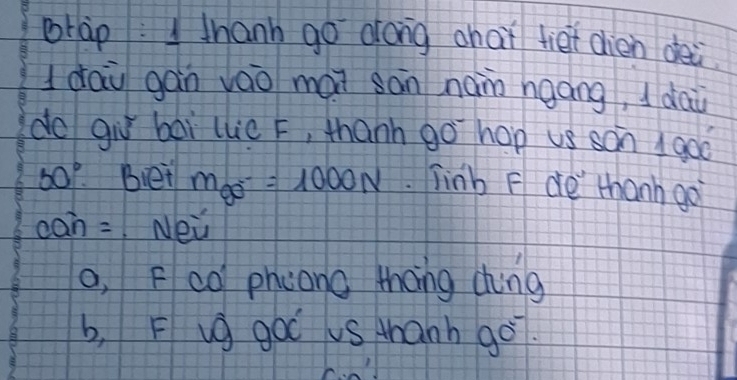 Btáp : 1 thanh gỗ đồng chất tiết diện đều.
1 đầu gắn vào mặt sàn nằm ngang, 1 đầu
đc giữ bởi lực F, thanh gỗ hợp vs sàn 1 góc
60°. Biết m gỗ = 1000N. Tính F để thanh gỗ
cân =. Nếu
a, F có phương thẳng đứng
b, F vg góc vs thanh gỗ.